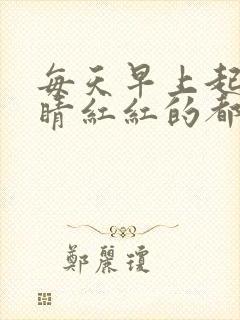 每天早上起
睛紅紅的都
鄭麗瓊